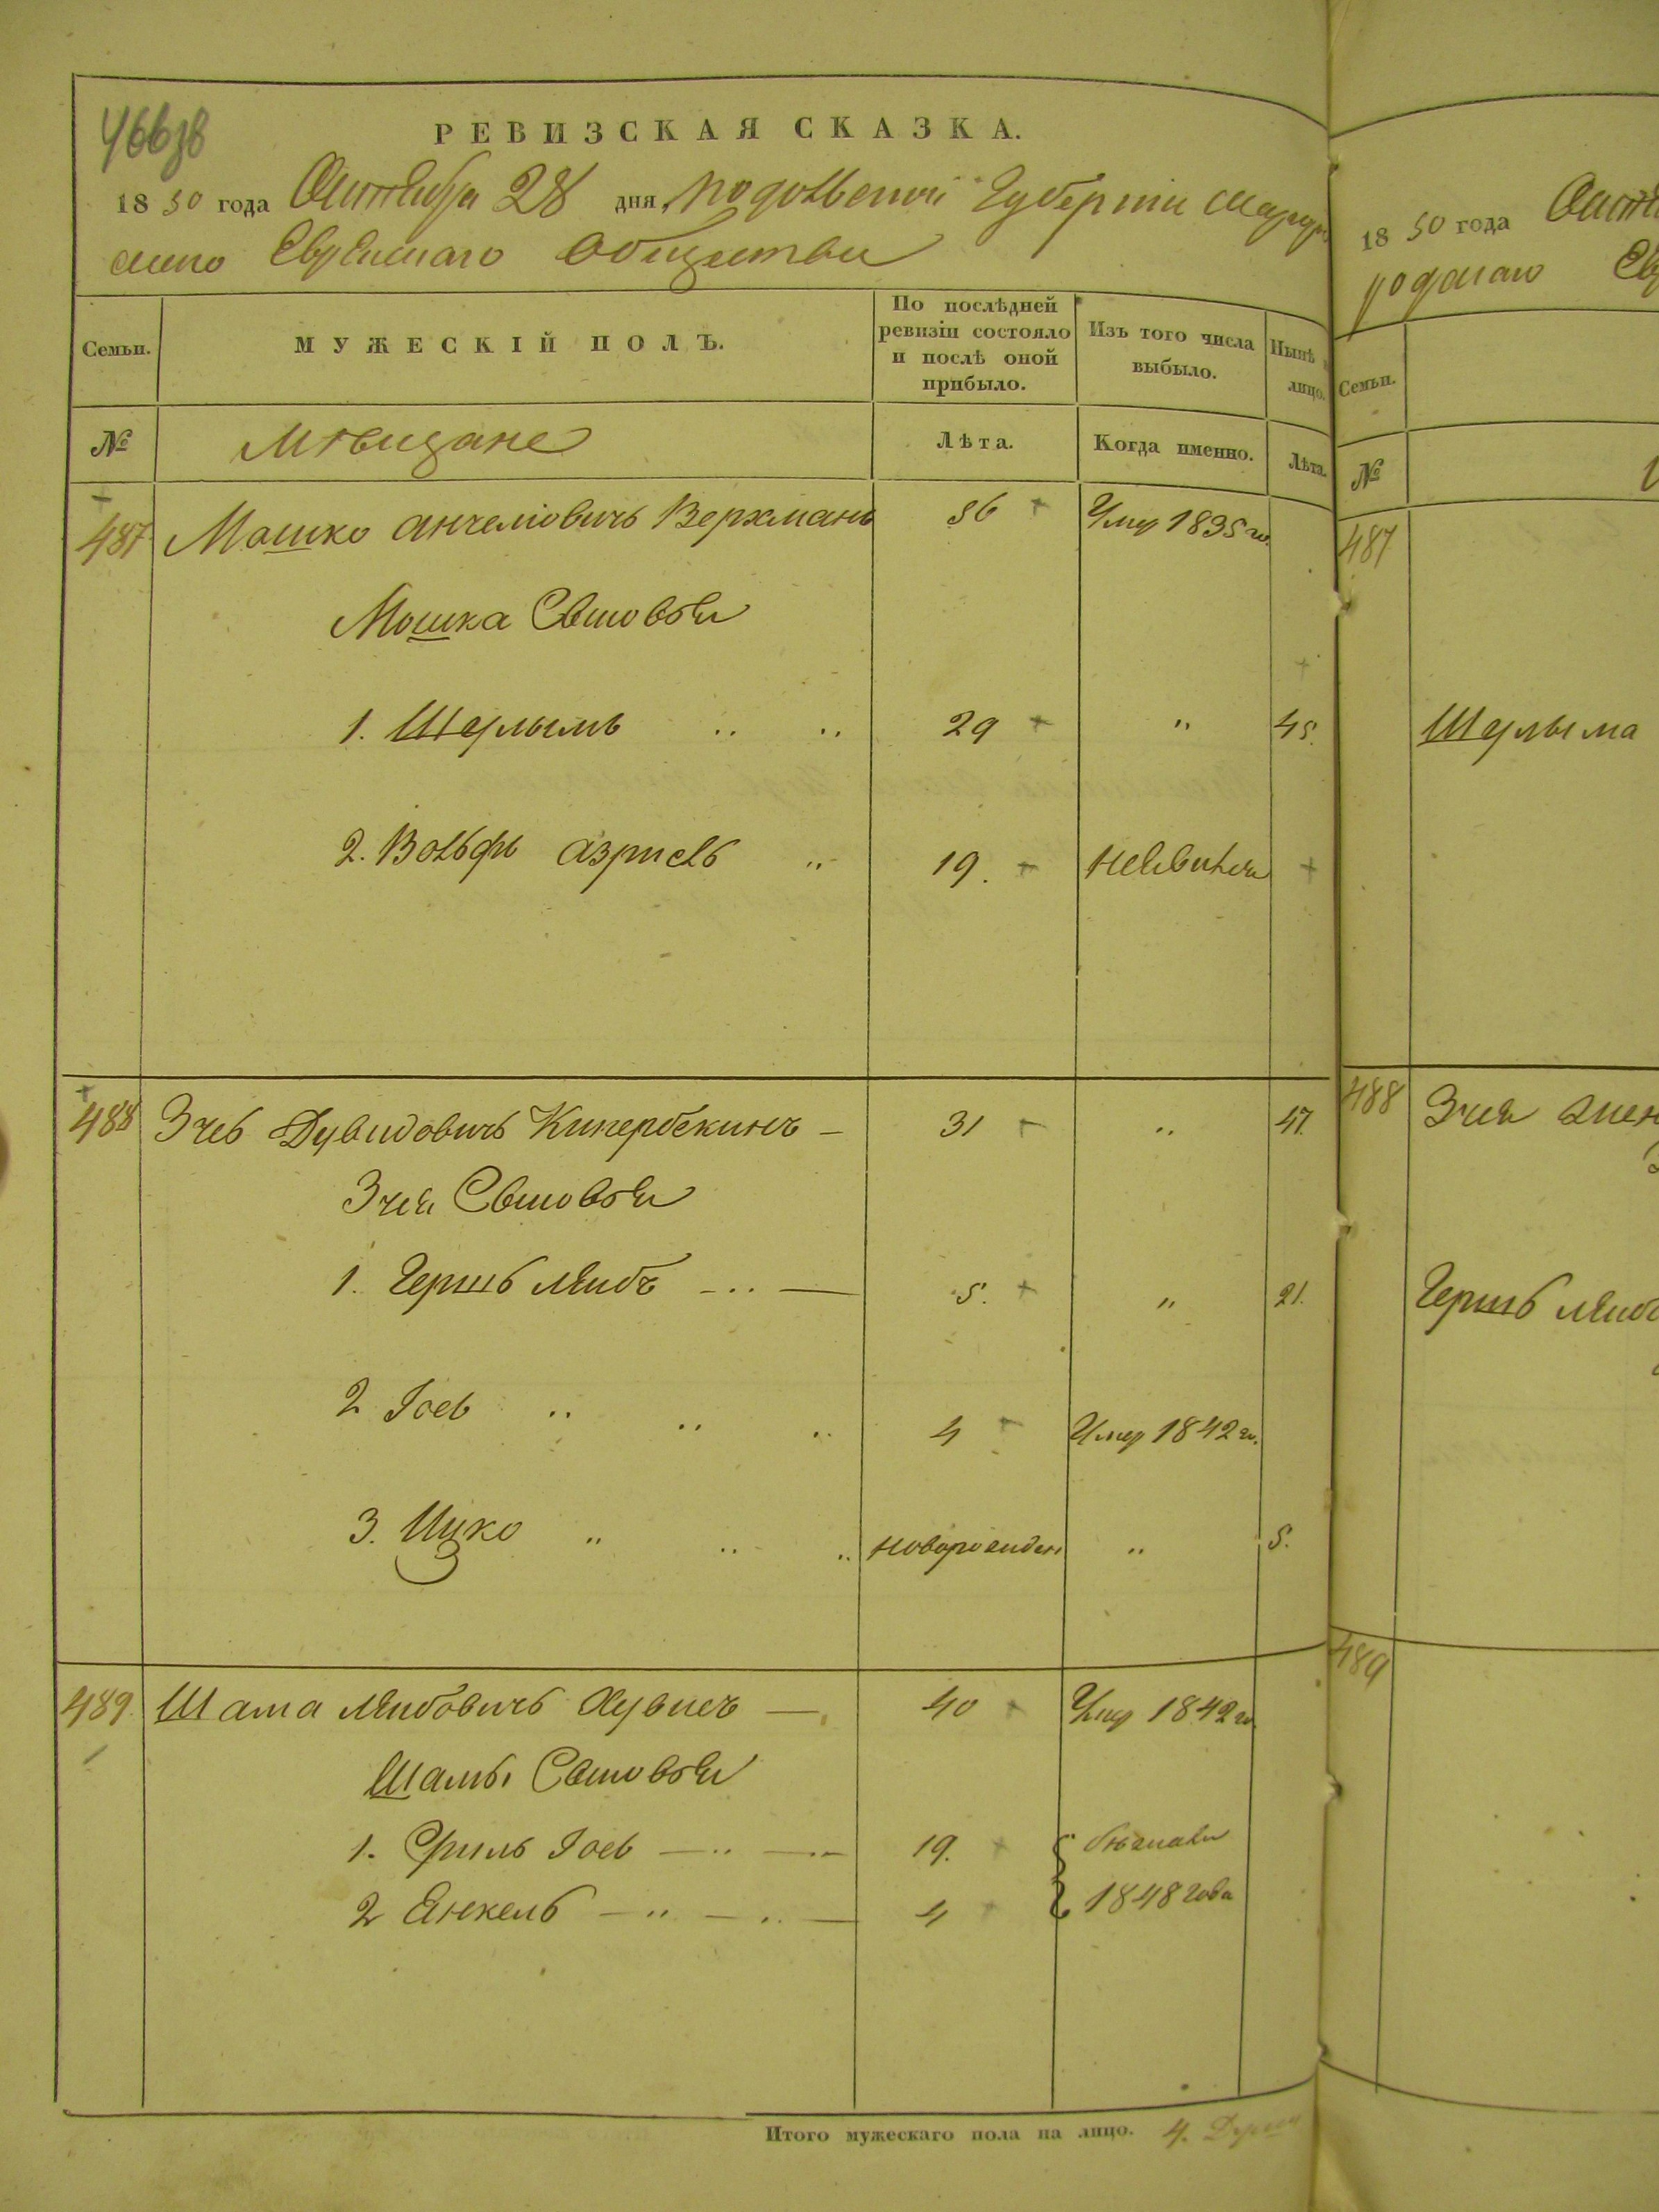 466 зв
РЕВИЗСКАЯ СКАЗКА.
1850 года Октября 28 дня, Подольской Губернии
Еврейскаго Общества
Семьи.
МУЖЕСКІЙ ПОЛЪ.
По послѣдней ревизіи состояло и послѣ оной прибыло.
Изъ того числа выбыло.
Нынѣ
лицо.
№
Мѣщане
Лѣта.
Когда именно.
Лѣта.
487 Мошко Анчеліовичъ Верхманъ 56 Умер 1835 го.
Мошка Сыновья
1. Шулымъ .. .. 29 " 45.
2. Вольфъ Азриель " 19. неявился
488 Зусь Дувидовичъ 31 .. 47.
Сыновья
1. Гершъ Лейбъ 5. " 21.
2 Іось .. .. .. 4 Умер 1842 го.
3. Ицко " .. .. новорожден .. 5.
489. Шама Лейбовичъ 40 Умер 1842 го
Шамы Сыновья
1. Сруль Іось 19.
2 Янкель 4
1848 года
Итого мужескаго пола на лицо. 4. Души
18 50 года
Семьи.
№
487
Шулыма
488
489
Гершъ